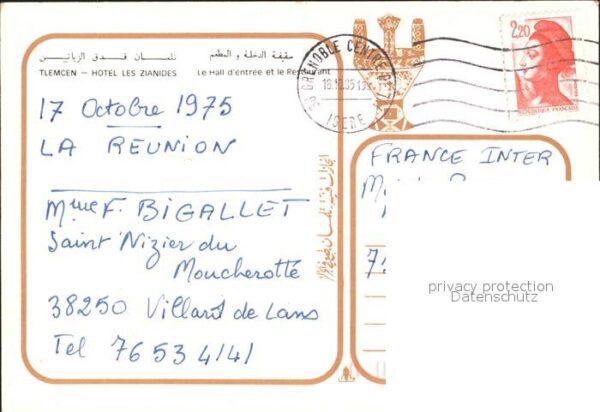 تلمسان فندق الزيانيين
سقيفة الدخلة و المطعم
TLEMCEN – HOTEL LES ZIANIDES
Le Hall d'entrée et le Restaurant
17 Octobre 1975
LA REUNION
Mme F. BIGALLET
Saint Nizier du
Moucherotte
38250 Villard de Lans
Tel 76 53 41 41
38 GRENOBLE CENTRE
ISERE
2,20
REPUBLIQUE FRANÇAISE
FRANCE INTER
privacy protection
Datenschutz